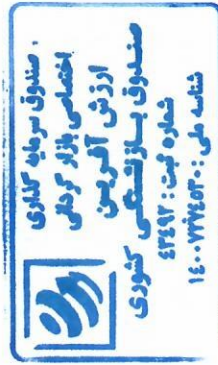 صندوق سرمایه گذاری
اختصاصی بازار گردانی
ارزش آفرین
صندوق بازنشستگی کشوری
شماره ثبت: ٤٣٤٨٢
شناسه ملی: ١٤٠٠٧٣٧٤٥٣٠